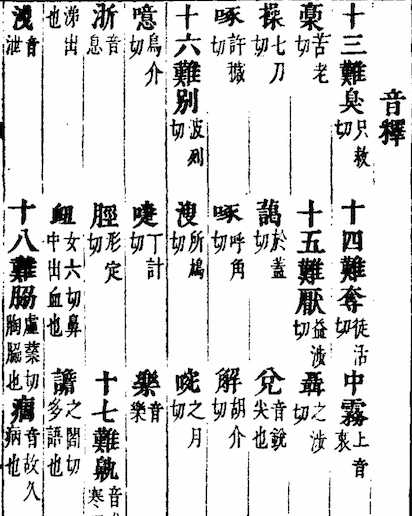 音釋
十三難臭只救切 十四難奪徒活切 中霧上音衷
藁苦老切 十五難厭益涉切 聶之涉切
操七刀切 藹於蓋切 兌音說尖也
啄許穢切 啄呼角切 解胡介切
十六難别波列切 溲所鳩切 之月切
噫烏介切 嚏丁計切 樂音樂
淅音息 脛形定切 十七難鼽音寒
涕出也 衄女六切鼻中出血也 譫之閤切多語也
洩音泄 十八難脇虛業切胸脇也 痼音故久病也